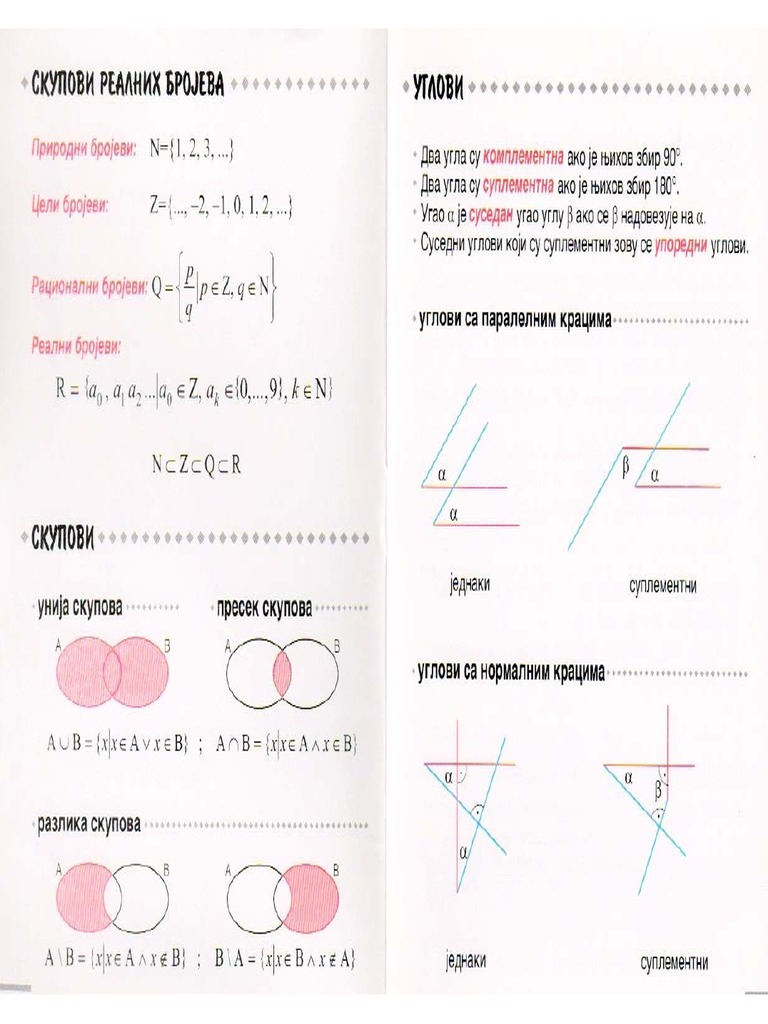 СКУПОВИ РЕАЛНИХ БРОЈЕВА
Природни бројеви: N={1, 2, 3, ...}
Цели бројеви: Z={..., –2, –1, 0, 1, 2, ...}
Рационални бројеви: Q = {p/q | p ∈ Z, q ∈ N}
Реални бројеви:
R = {a₀, a₁ a₂ ...| a₀ ∈ Z, aₖ ∈ {0,...,9}, k ∈ N}
N⊂Z⊂Q⊂R
СКУПОВИ
унија скупова пресек скупова
A B A B
A∪B = {x|x∈A∨x∈B} ; A∩B = {x|x∈A∧x∈B}
разлика скупова
A B A B
A\B = {x|x∈A∧x∉B} ; B\A = {x|x∈B∧x∉A}
УГЛОВИ
Два угла су комплементна ако је њихов збир 90°.
Два угла су суплементна ако је њихов збир 180°.
Угао α је суседан угао углу β ако се β надовезује на α.
Суседни углови који су суплементни зову се упоредни углови.
углови са паралелним крацима
α β α
α
једнаки суплементни
углови са нормалним крацима
α α
β
α
једнаки суплементни